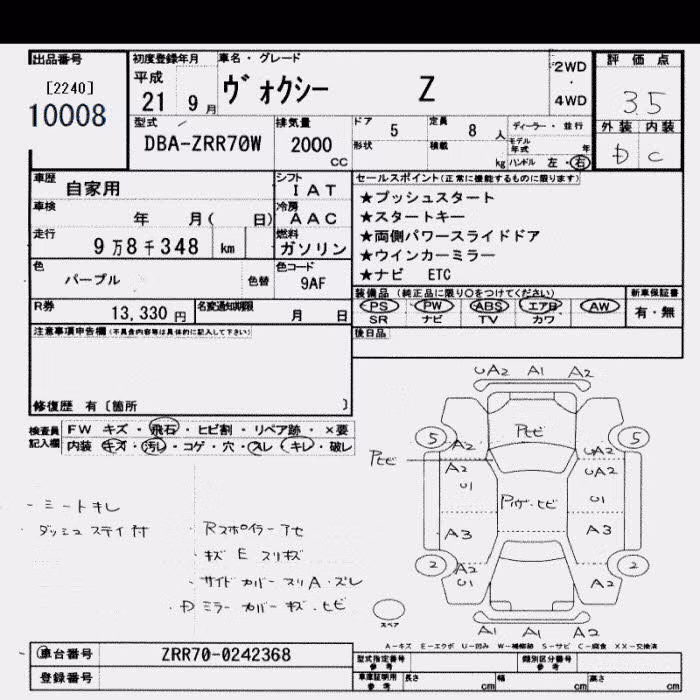 出品番号
[2240]
10008
初度登録年月
平成
21 9月
車名・グレード
ヴォクシー Z
2WD
・
4WD
評価点
3.5
外装 内装
D C
型式
DBA-ZRR70W
排気量
2000
CC
ドア
5
定員
8 人
ディーラー・並行
形状
積載
kg
モデル年式
年
ハンドル 左・右
車歴
自家用
シフト
IAT
車検
年 月( 日)
冷房
AAC
走行
9万8千348 km
燃料
ガソリン
色
パープル
色替
色コード
9AF
R券
13,330円
名変通知期限
月 日
セールスポイント(正常に機能するものに限ります)
★プッシュスタート
★スタートキー
★両側パワースライドドア
★ウインカーミラー
★ナビ ETC
装備品(純正品に限り○をつけてください)
PS PW ABS エアB AW
SR ナビ TV カワ
新車保証書
有・無
後日品
注意事項申告欄(不具合内容等は具体的に記入して下さい)
修復歴 有〔箇所 〕
検査員
記入欄
FW キズ・飛石・ヒビ割・リペア跡・×要
内装 キズ・汚レ・コゲ・穴・スレ・キレ・破レ
・シートキレ
・ダッシュ ステイ付
・Rスポイラー アセ
・キズ E スリキズ
・サイドカバー スリA・ズレ
・Dミラーカバー キズ・ヒビ
UA2 A1 A2
5 A2 Pヒビ 5
Pヒビ
A2 A2
UA2
U1 Pハゲ・ヒビ U1
A3 A3
2 A2 2
U1 A2
A1 A1 A2
スペア
A-キズ E-エクボ U-凹み W-補修跡 S-サビ C-腐食 XX-交換済
車台番号
ZRR70-0242368
登録番号
型式指定番号
参考
類別区分番号
参考
車庫証明用
参考
長さ cm 幅 cm 高さ cm